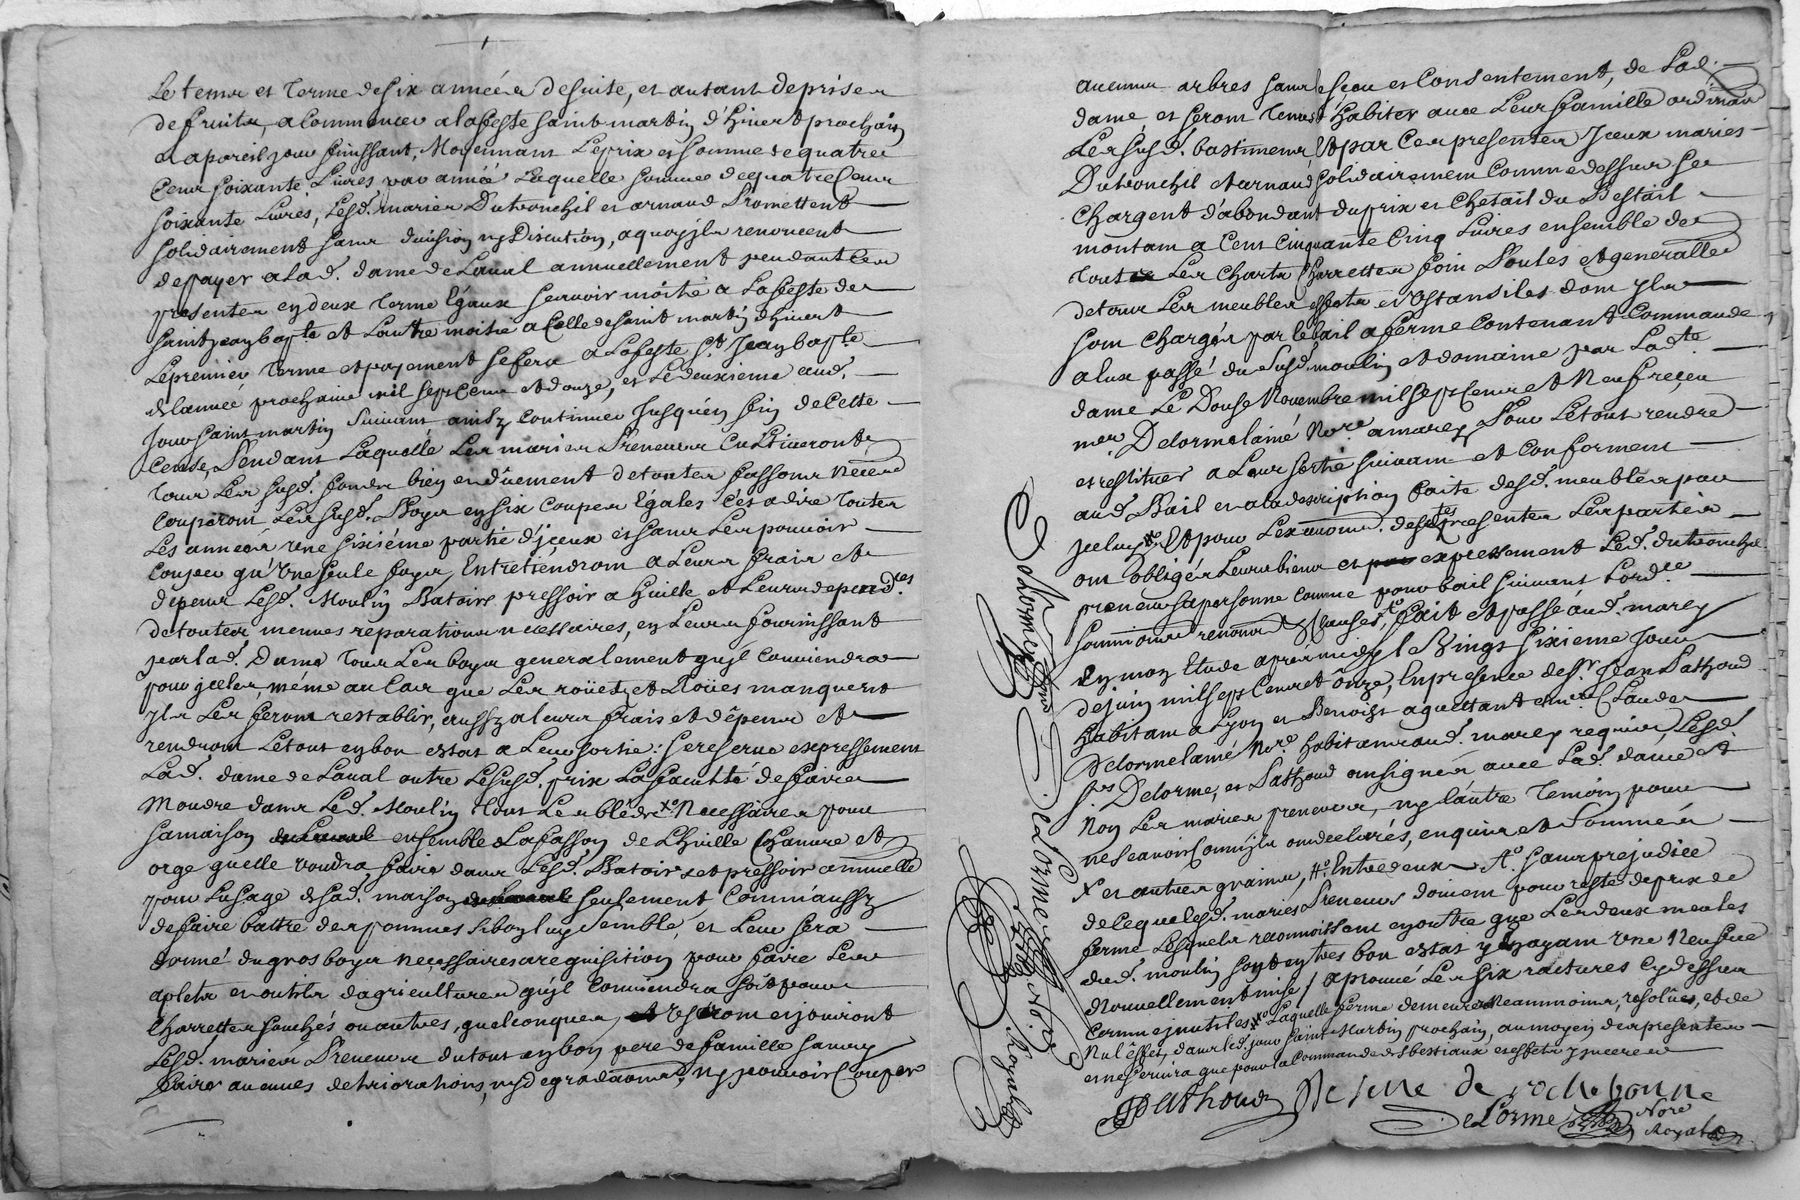 Le tems et terme de six années de suite, et autant de prises
de fruits, a Commencer a la feste saint martin d'hivert prochain
et a pareil jour finissant, Moyennant Le prix et somme de quatre
Cens soixante Livres par année Laquelle somme de quatre Cens
soixante Livres, Lesd. maries Dutronchil et arnaud Promettent
solidairement sans division ny Discution, a quoy jls renoncent
de payer a lad. dame de Laval annuellement pendant Les
presentes en deux terme Egaux scavoir moitié a La feste de
saint jean bapte et L'autre moitié a Celle de saint martin d'hivert
Le premier terme et payement se fera a La feste St. Jean bapte
de lannée prochaine mil sept Cens et douze, et Le deuxieme aud.
Jour saint martin suivant ainsy continuer Jusqu'en fin de Cette
Cense, Pendant Laquelle Les maries Preneurs Cultiveront
tous Les susd. fonds bien et düement de toutes fassons necess
Couperont Les susd. Boys en six Coupes Egales C'est a dire toutes
Les années une sixiéme partie d'jceux et sans Les pouvoir
Couper qu'une seule foys, Entretiendront a Leurs frais et
dépens Lesd. Moulin Batoire pressoir a huille et Leurs depend.ces
de toutes menues reparations necessaires, en Leurs fournissant
par lad. Dame tous Les boys generalement qu'jl Conviendra
pour jcelles, méme au Cas que Les roüets et Roües manquent
jls Les feront restablir, aussy a leurs frais et dépens et
rendront Le tout en bon estat a Leur sortie: se reserve expressement
Lad. dame de Laval outre Le susd. prix La faculté de faire
Moudre dans Led. Moulin tous Les bleds X Necessaires pour
sa maison ensemble La fasson de L'huille Chanvre et
orge quelle voudra faire dans Lesd. Batoire et pressoir annuelle
pour Lusage de sad. maison seulement Comm'aussy
de faire battre des pommes si bon luy semble, et Leur sera
donné du gros boys necessaires a requisition pour faire Les
aplets et outils d'agriculture qu'jl Conviendra soit pour
Charrettes fauchés ou autres, quelconques, et jouiront
Lesd. maries Preneurs du tout en bon pere de famille sans y
faire aucunes deteriorations, ny degradations, ny pouvoir Couper
aucuns arbres sans L'sceu et Consentement, de Lad.
dame et seront Tenus d'habiter avec Leur famille ordinair
Les susd. bastimens, Et par Ces presentes Jceux maries
Dutronchil et arnaud solidairement Comme dessus se
Chargent d'abondant du prix et Chetail du Bestail
montant a Cent Cinquante Cinq Livres ensemble de
tout Les Charts Charrettes foin Pailles et generalle
de tous Les meubles effects et Ustansiles dont jls
sont Chargés par le bail a ferme Contenant Commande
a lux passé du susd. moulin et domaine par Ladte
dame Le Douse Novembre mil sept Cens et Neuf reçeu
mer Delorme lainé Nore a marcy Pour Le tout rendre
et restituer a Leur sortie suivant et Conformem
aud. Bail et a la description faite desd. meubles par
jcelluy Et pour Lexecution desdtes presentes Les parties
ont obligé Leurs biens et expressement Led. dutronchil
preneur sa personne comme pour bail suivant Lordce
soumions renons & Clauses, fait et passé aud. marcy
En mon Etude aprésmidy le Vingt sixieme Jour
de juin mil sept Cens et onze, En presence de Sr. Jean Pathoud
habitant a Lyon et Benoist aquettant et mer Claude
Delorme lainé Nore. habitant aud. marcy requier Lesd.
Srs Delorme, et Pathoud ont signés avec Lad. dame et
Non Les maries preneurs, ny l'autre Temoin pour
ne scavoir Comm'jls ont declarés, enquis et Sommés
X et autres grains, #. Entredeux. #. sans prejudice
de Ce que Lesd. maries Preneurs doivent pour reste de prix de
ferme Lesquels reconnoissent en outre que Les deux meules
dud. moulin sont en tres bon estat y En ayant une Neufve
Nouvellement mise / aprouvé Les six ratures cy dessus
Comme jnutiles Laquelle ferme demeurera Neanmoins, resolüe, et de
Nul effet, dans led. jour saint Martin prochain, au moyen des presentes
et ne servira que pour la Commande des bestiaux et effets y
Pathoud De sene de rochebonne
DeLorme Nore Royal
Delorme
DeLorme
Nore Royal